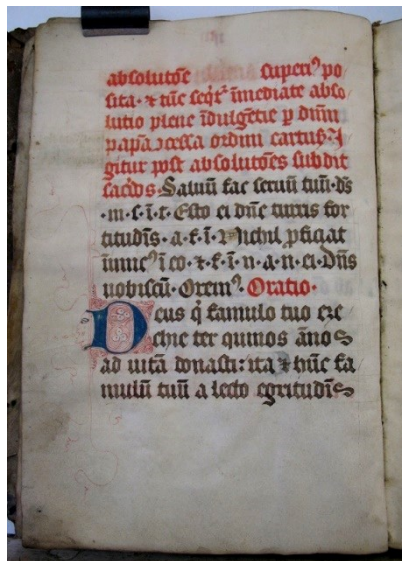 absolutōe superi⁹ po
sita · ⁊ tūc seqr̄ īmediate abso
lutio plene īdulgētie p dnm̄
papā ɔcessa ordini cartuſ · I
gitur post absolutōes subdit
sacdos · Saluū fac seruū tuū · ds̄
· m · s · ī · t · Esto ei dn̄e turris for
titudīs · a · f · ī · ⁊ Nichil pficiat
inimic⁹ ī eo · ⁊ · f · ī · n · a · n · ei · Dn̄s
uobiscū · Orem⁹ · Oratio ·
Deus q̄ famulo tuo eze
chie ter quinos āno s
ad uitā donasti : ita ⁊ hūc fa
mulū tuū a lecto egritudīs